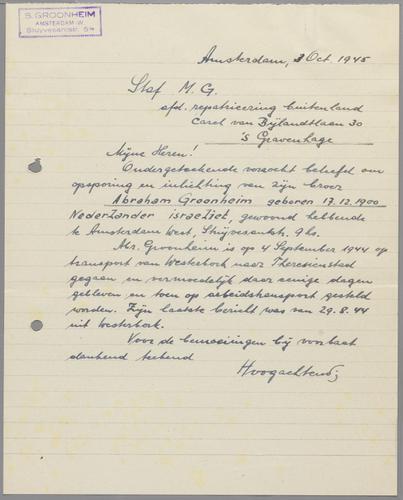 S. GROONHEIM
AMSTERDAM-W.
Stuyvesantstr.
Amsterdam, 3 Oct. 1945
Staf M. G.
afd. repatrieering buitenland
Carel van Bijlandtlaan 30
's Gravenhage
Mijne Heren!
Ondergetekende verzoekt beleefd om
opsporing en inlichting van zijn broer
Abraham Groonheim geboren 17.12.1900
Nederlander israeliet, gewoond hebbende
te Amsterdam West, Stuijvesantstr. 9 hs.
Abr. Groonheim is op 4 September 1944 op
transport van Westerbork naar Theresienstad
gegaan en vermoedelijk daar eenige dagen
gebleven en toen op arbeidstransport gesteld
worden. Zijn laatste bericht was van 29.8.44
uit Westerbork.
Voor de bemoeiingen bij voorbaat
dankend teekend
Hoogachtend;